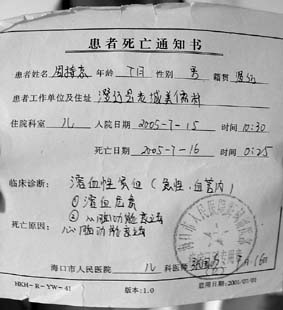 患者死亡通知书
患者姓名 年龄 性别 男 籍贯 澄迈
患者工作单位及住址 澄迈县老城美儒村
住院科室 儿 入院日期 2005-7-15 时间 10:30
死亡日期 2005-7-16 时间 0:25
临床诊断: 溶血性贫血(急性·血管内)
①溶血危象
②心脑功能衰竭
死亡原因: 心脑功能衰竭
海口市人民医院 儿 科医师 月16日
HKH-R-YW-41 版本:1.0 启用日期:2001/01/01